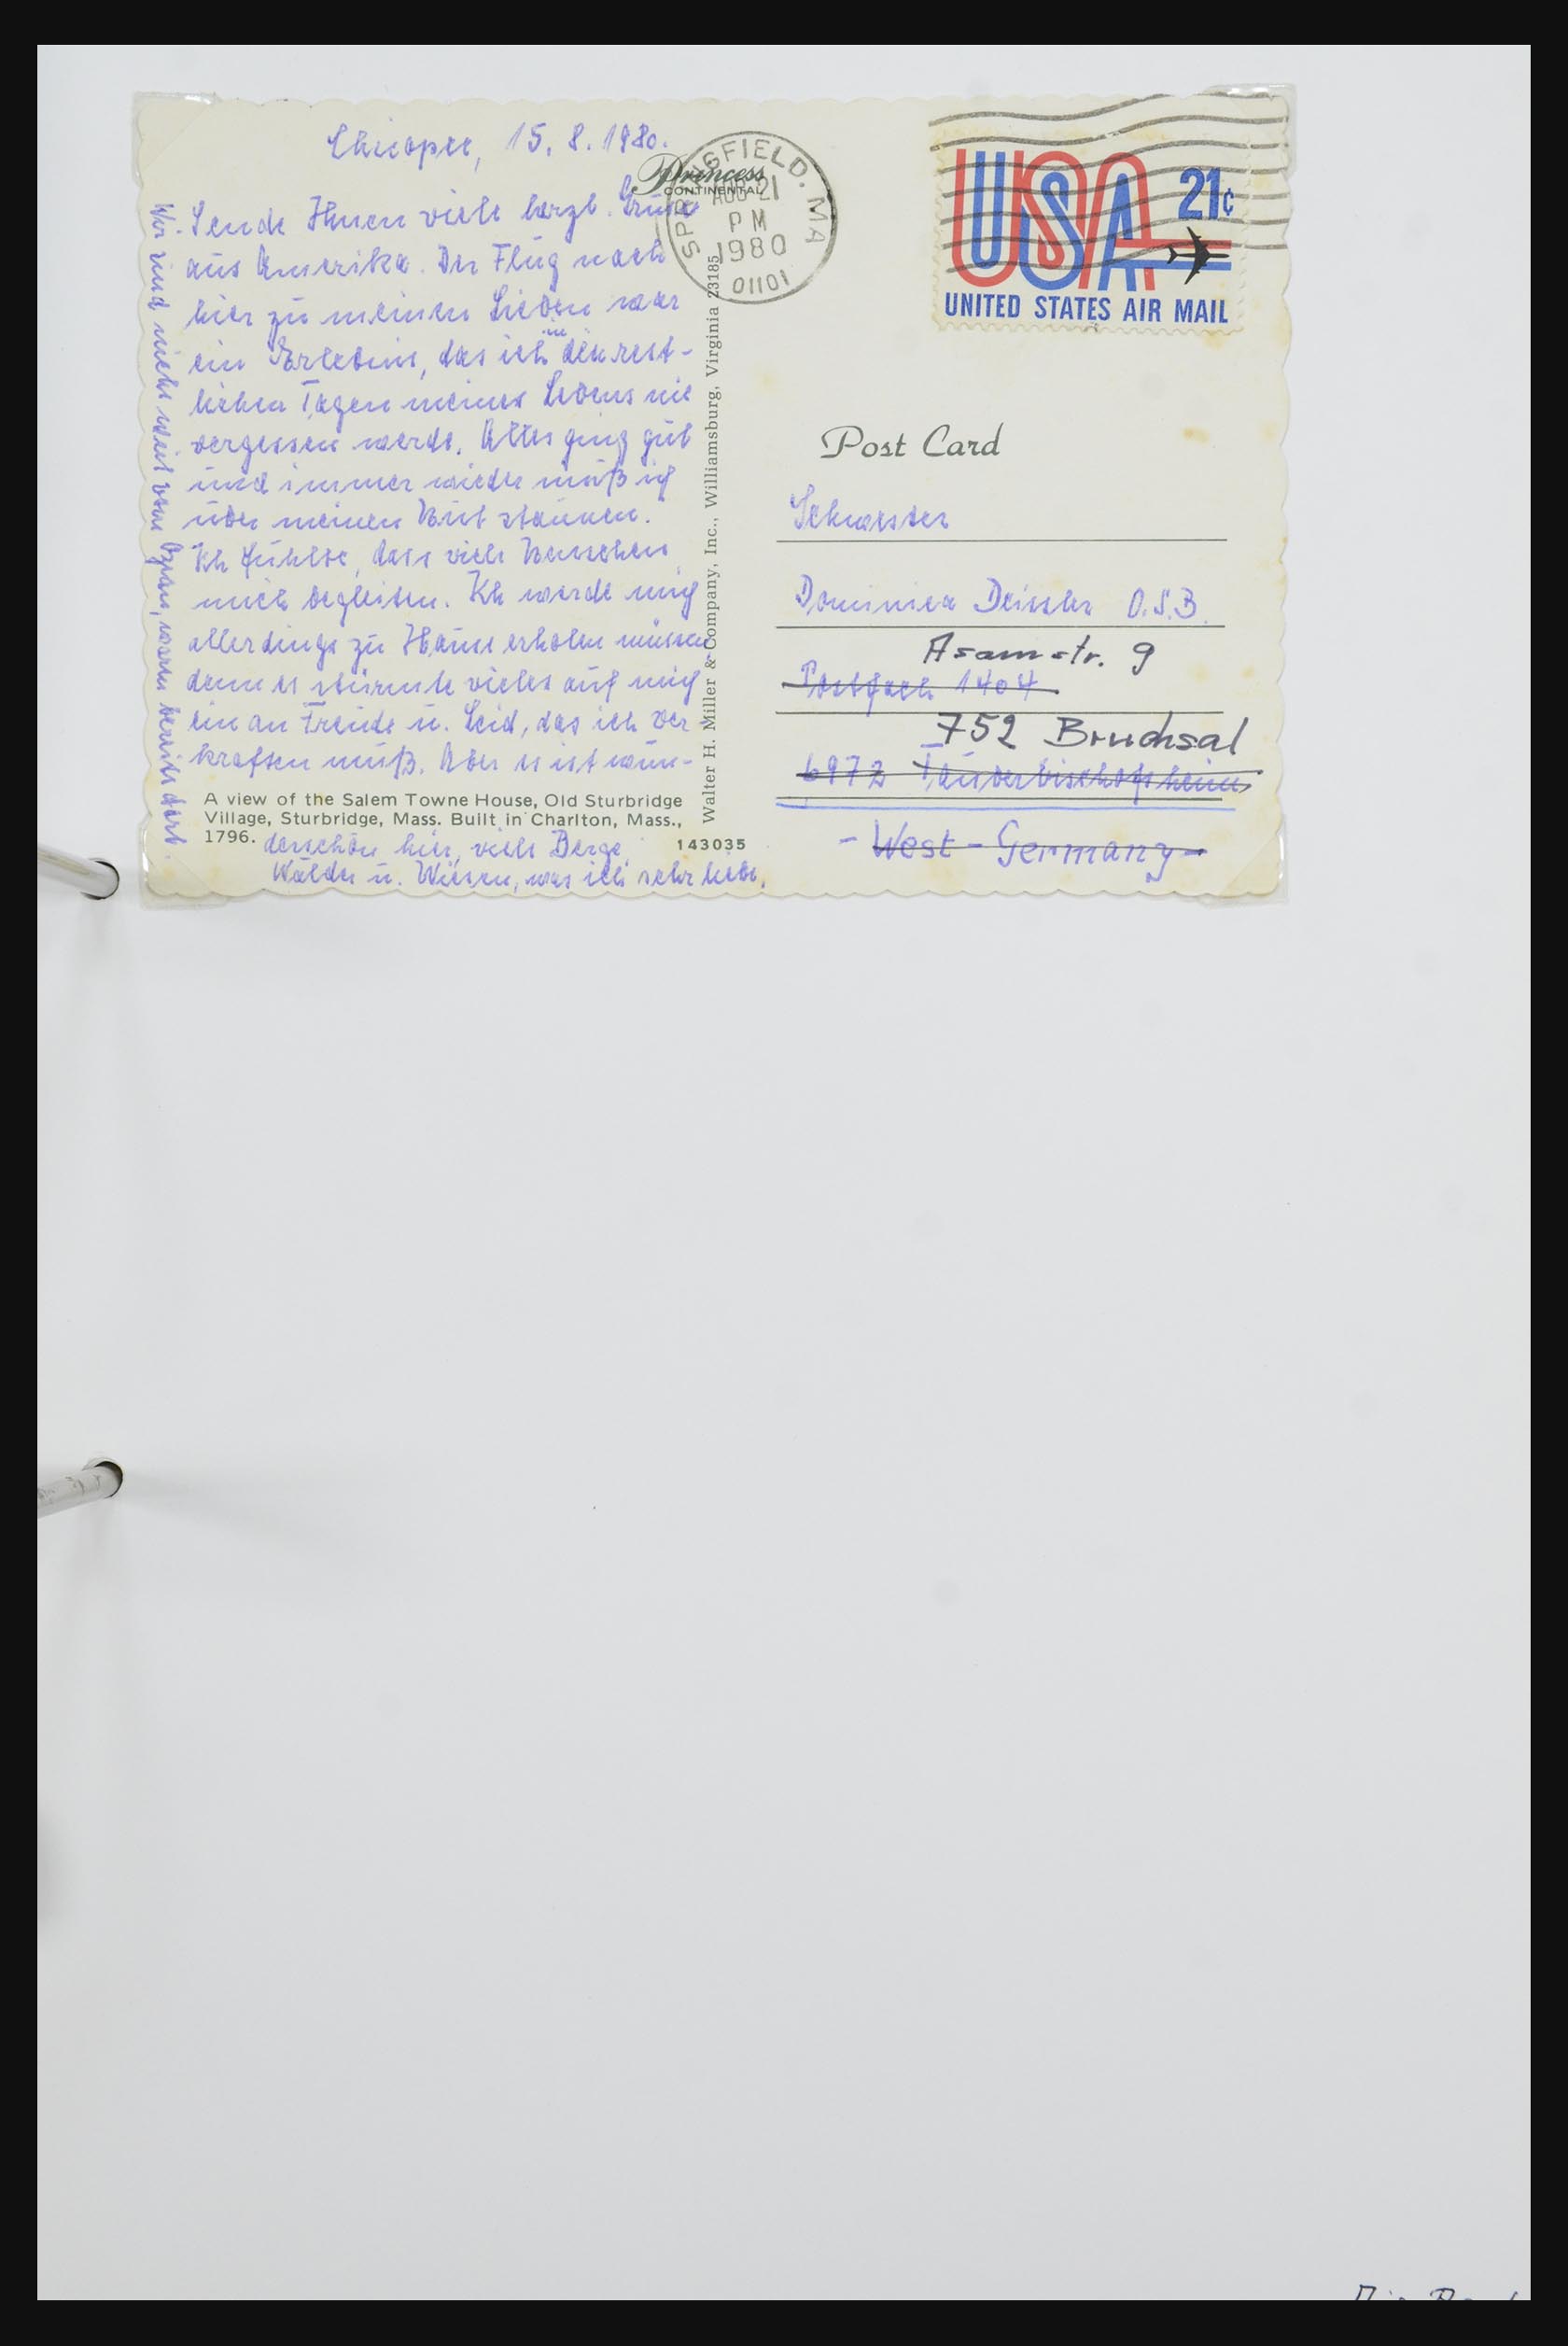 Chicopee, 15. 8. 1980.
Sende Ihnen viele herzl. Grüße
aus Amerika. Der Flug nach
hier zu meinen Lieben war
ein Erlebnis, das ich in den rest-
lichen Tagen meines Lebens nie
vergessen werde. Alles ging gut
und immer wieder muß ich
über meinen Mut staunen.
Ich fühlte, dass viele Menschen
mich begleiten. Ich werde mich
allerdings zu Hause erholen müssen,
denn es stürmte vieles auf mich
ein an Freude u. Leid, das ich ver-
kraften muß. Aber es ist wun-
derschön hier, viele Berge,
Wälder u. Wiesen, was ich sehr liebe.
Wir sind nicht weit vom Ozean, waren bereits dort.
A view of the Salem Towne House, Old Sturbridge
Village, Sturbridge, Mass. Built in Charlton, Mass.,
1796.
143035
Princess
CONTINENTAL
Walter H. Miller & Company, Inc., Williamsburg, Virginia 23185
SPRINGFIELD. MA
AUG 21
PM
1980
01101
USA
21c
UNITED STATES AIR MAIL
Post Card
Schwester
Dominica Deissler O.S.B.
Asamstr. 9
Postfach 1404
752 Bruchsal
6972 Tauberbischofsheim
- West - Germany -